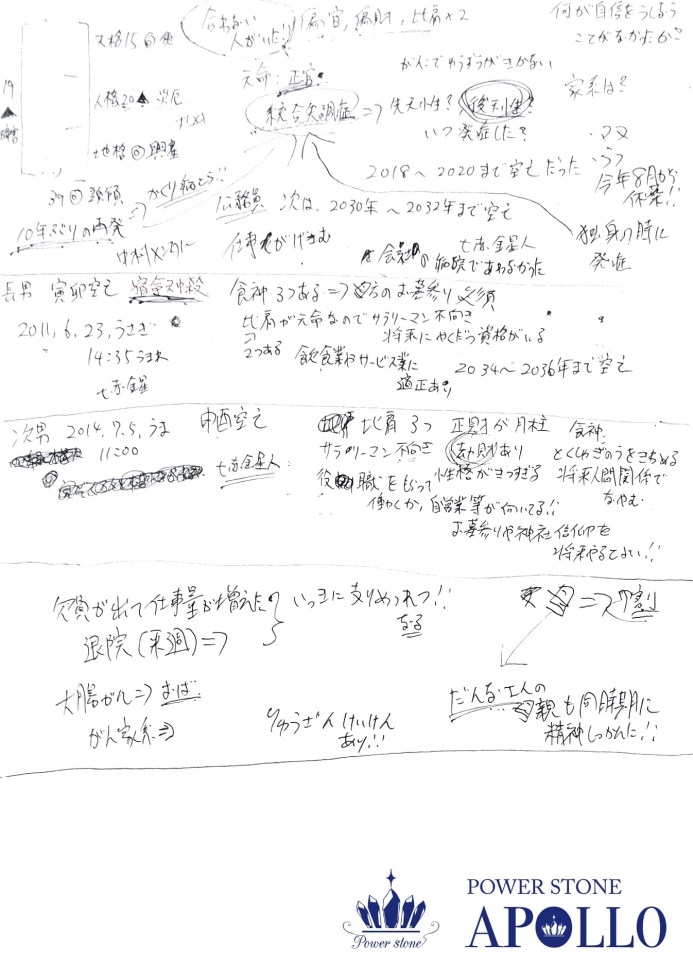 天格15◎
合わない
人がいた!!
偏官, 偏財, 比肩×2
何が自信をうしなう
ことがなかったか?
元命: 正官
19
人格20▲ 災厄
統合失調症 ⇒ 先天性? 後天性?
いつ発症した?
家系は?
地格◎ 興産
2018~2020まで空亡だった
今年8月から
休業!!
39◎頭領
かくり病とう!!
10年ぶりの再発
公務員
次は、2030年~2032年まで空亡
仕事
七赤金星人
の病院であわなかった
独身の時に
発症
長男 寅卯空亡 宿命天中殺
食神 3つある ⇒ お墓参り必須
比肩が元命なのでサラリーマン不向き
2つある
将来にやくだつ資格がいる
2011, 6, 23, うさぎ
14:35うまれ
飲食業やサービス業に
適正あり
2034~2036年まで空亡
七赤金星
次男 2014, 7.5, うま 申酉空亡
11:00
七赤金星人
比肩3つ 正財が月柱 食神
サラリーマン不向き 劫財あり とくしゅぎのうをきわめる
役職をもって 性格がきつすぎる 将来人間関係で
なやむ
働くか, 自営業等が向いてる!!
お墓参りや神社信仰を
将来やるとよい!!
欠員が出て仕事量が増えた
いっきに
なる
退院(来週)⇒
⇒
大腸がん ⇒ おば
がん家系⇒
りゅうざんけいけん
あり!!
だんなさんの
母親も同時期に
精神しっかんに!!
Power stone
POWER STONE
APOLLO